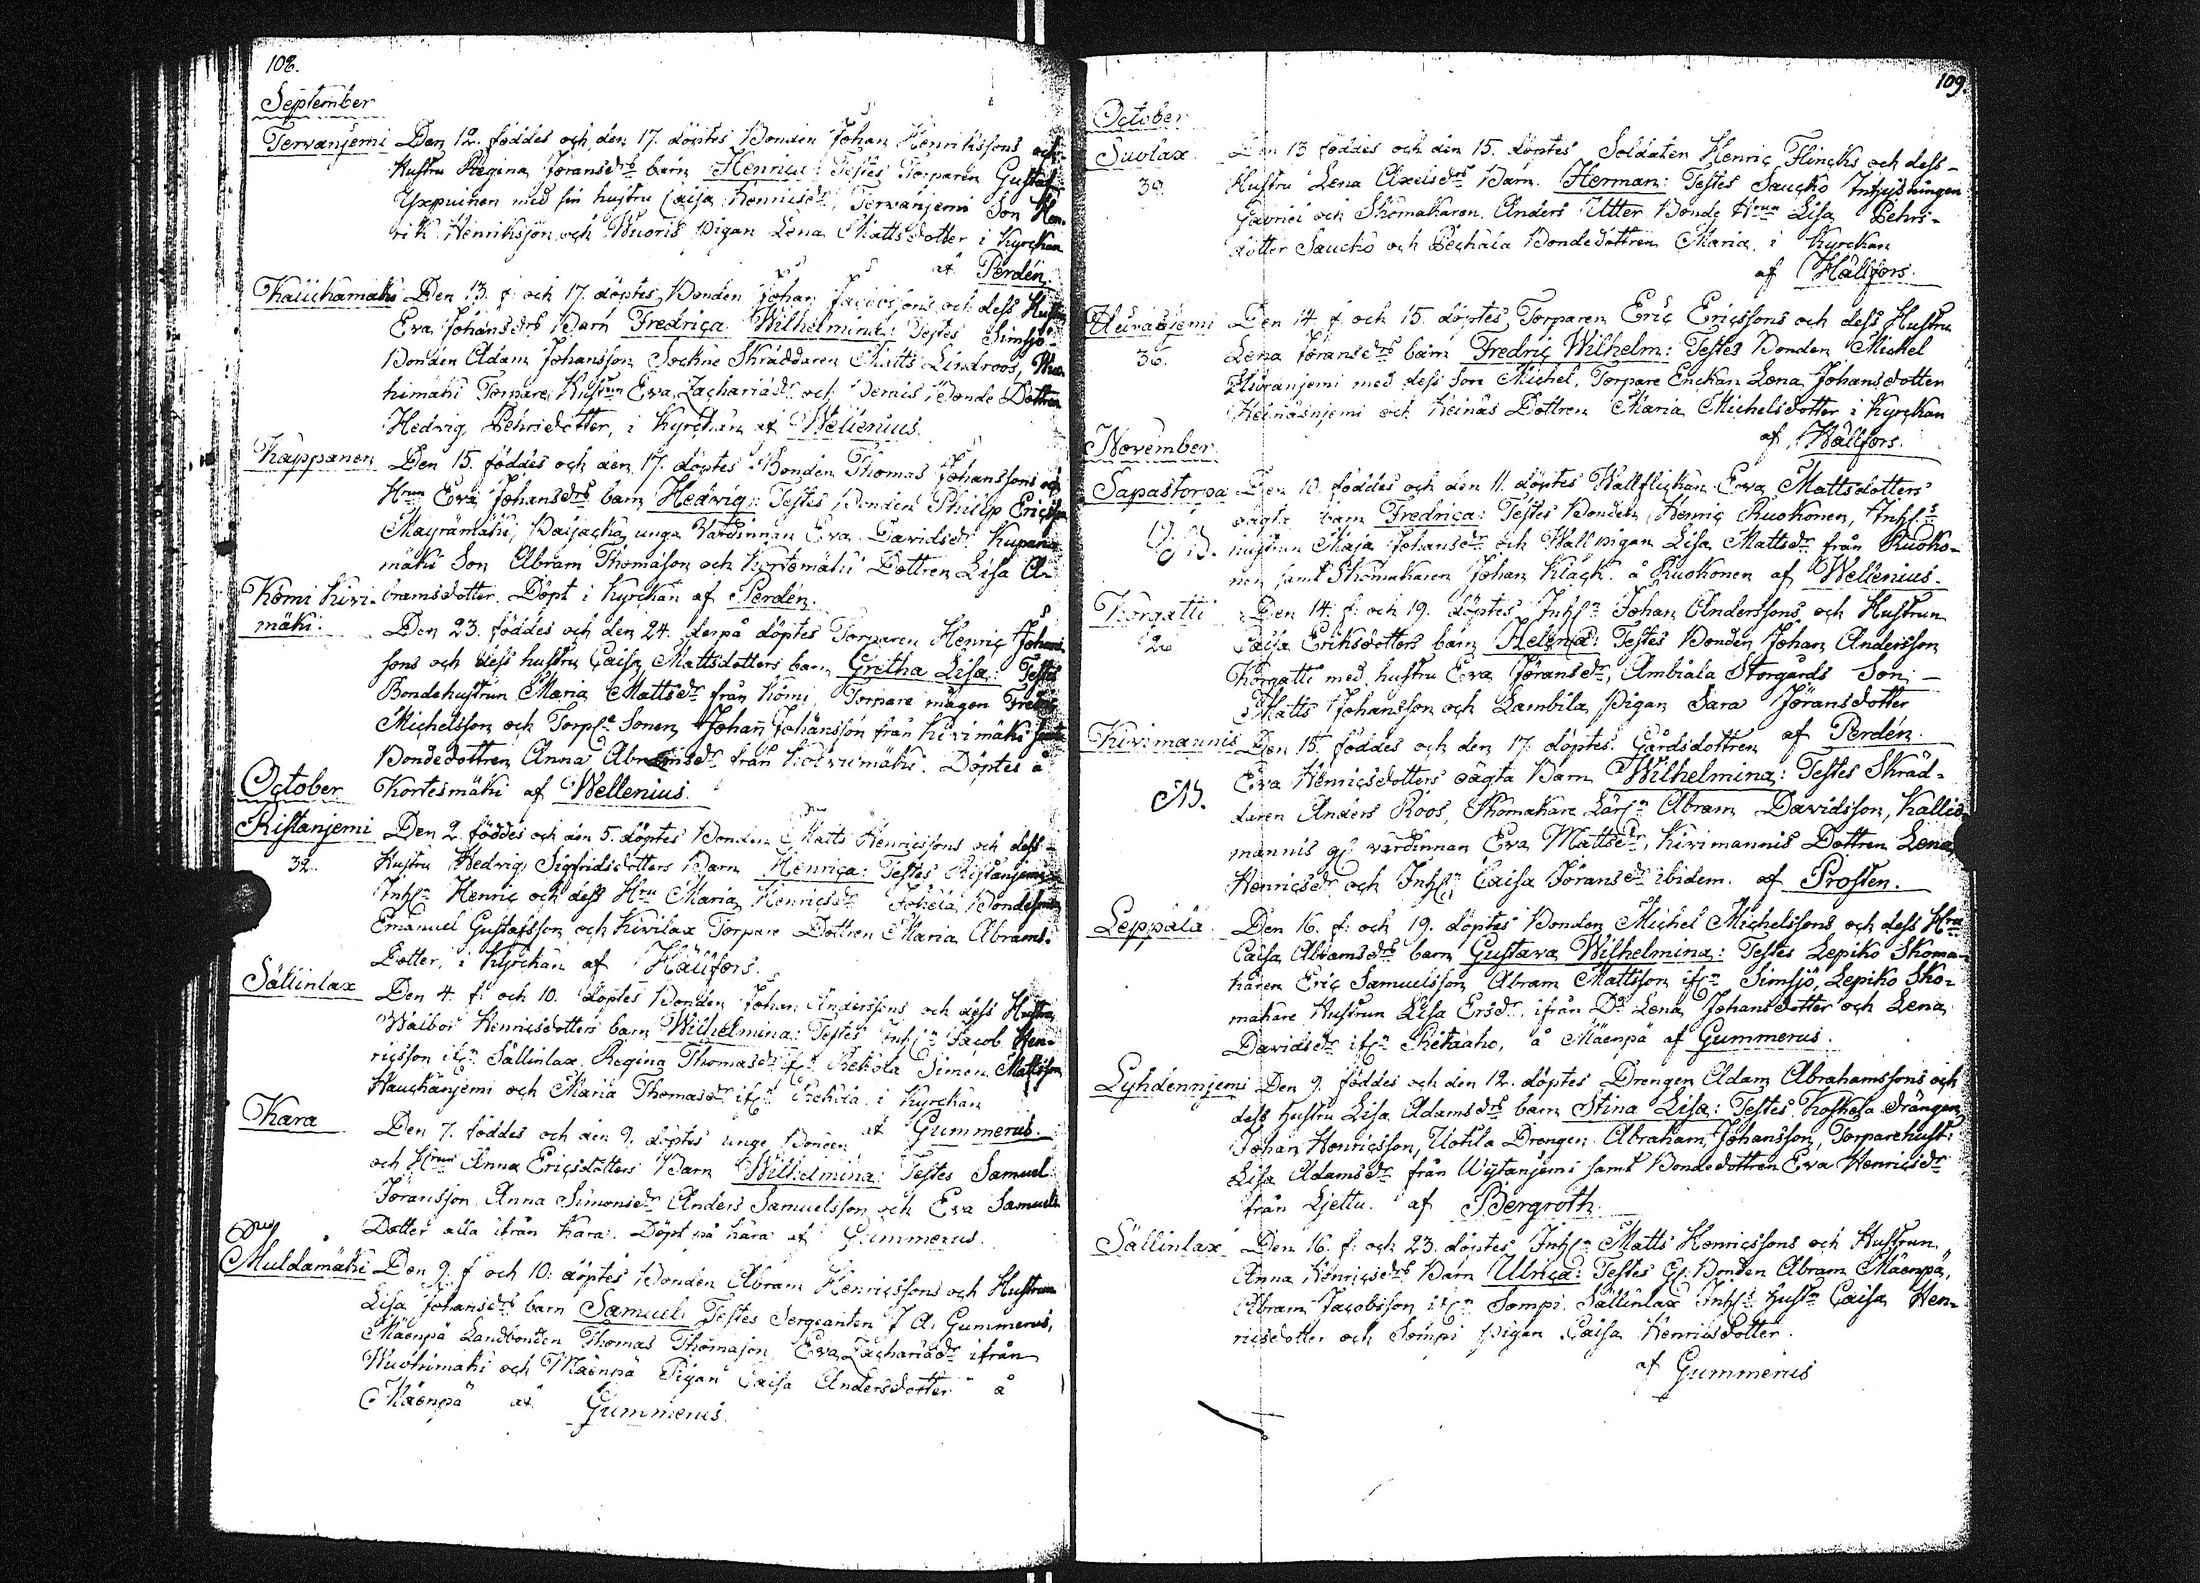 108.
September
Tervanjemi Den 12. föddes och den 17. döptes Bonden Johan Henrikssons och
Hustru Regina Joransdrs barn Henrica: Testes Torparen Gustaf
med sin hustru Caisa Henricsdr, Tervanjemi Son Hen-
rik Henriksson och Wuoris Pigan Lena Mattsdotter i Kyrckan
af Perdén
Kauckamäki Den 13. f. och 17. döptes Bonden Johan Jacobssons och dess Hustru
Eva Johansdrs Barn Fredrica Wilhelmina: Testes Simsjö
Bonden Adam Johansson Sockne Skräddaren Matts Lindroos,
himäki Torpare Hustrun Eva Zachariadr och Bonde Dottren
Hedvig Pehrsdotter, i Kyrckan af Wellenius.
Kappanen Den 15. föddes och den 17. döptes Bonden Thomas Johanssons och
Hrun Eva Johansdrs barn Hedvig: Testes Bonden Philip Ericsson
Mayrämäki, unga Värdinnan Eva Davidsdr
mäki Son Abram Thomasson och Kortemäki Dottren Lisa A-
Kömi Kivi- bramsdotter. Döpt i Kyrckan af Perdén.
mäki. Den 23. föddes och den 24. derpå döptes Torparen Henric Johans
sons och dess hustru Caisa Mattsdotters barn Gretha Lisa: Testes
Bondehustrun Maria Mattsdr från Kömi, Torpare mågen
Michelsson och Sonen Johan Johansson från Kivimäki samt
Bondedottren Anna från Döptes å
October Kortesmäki af Wellenius.
Ristanjemi Den 2. föddes och den 5. döptes Bonden Matts Henricssons och dess
32. Hustru Hedvig Sigfridsdotters Barn Henrica: Testes Ristanjemi
Henric och dess Hru Maria Henricsdr Bondesonen
Emanuel Gustafsson och Kivilax Torpare Dottren Maria Abrams-
Dotter, i Kyrckan af Hällfors.
Sällinlax Den 4. f. och 10. döptes Bonden Johan Anderssons och dess Hustru
Walbor Henricsdotters barn Wilhelmina: Testes Jacob Hen-
ricsson Sällinlax, Regina Thomasdr Rekola Simon Mattsson
Hauckanjemi och Maria Thomasdr Rekola i Kyrckan
af Gummerus.
Kara Den 7. föddes och den 9. döptes unge Bonden
och Hrun Anna Ericsdotters Barn Wilhelmina: Testes Samuel
Joransson, Anna Simonsdr Anders Samuelsson och Eva Samuels
Dotter alla ifrån Kara. Döpt på Kara af Gummerus.
Muldamäki Den 9. f och 10. döptes Bonden Abram Henricssons och Hustrun
Lisa Johansdrs barn Samuel: Testes Sergeanten J A: Gummerus,
Mäenpä Landbonden Thomas Thomasson, Eva Zachariadr ifrån
Wuohimäki och Mäenpä Pigan Caisa Andersdotter å
Mäenpä af Gummerus.
109.
October
Suolax Den 13 föddes och den 15. döptes Soldaten Henric Flincks och dess
39. Hustru Lena Axelsdrs Barn. Herman: Testes Saucko
Gabriel och Skomakaren Anders Utter Bonde Hrun Lisa Pehrs-
dotter Saucko och Pechala Bondedottren Maria, i Kyrckan
af Hällfors.
Heinäsjemi Den 14. f och 15. döptes Torparen Eric Ericssons och dess Hustru
36. Lena Joransdrs barn Fredric Wilhelm: Testes Bonden Michel
med dess Son Michel, Torpare Enckan Lena Johansdotter
Heinäsnjemi och Heinäs Dottren Maria Michelsdotter i Kyrckan
af Hällfors.
November
Sapastorpa Den 10. föddes och den 11. döptes Wallflickan Eva Mattsdotters
oägta barn Fredrica: Testes Bonden Henric Ruokonen,
NB. hustrun Maja Johansdr och Wall pigan Lisa Mattsdr från Ruoko-
nen samt Skomakaren Johan Klack. å Ruokonen af Wellenius.
Korgatti Den 14. f. och 19. döptes Johan Anderssons och Hustrun
26. Caisa Eriksdotters barn Helena: Testes Bonden Johan Andersson
Korgatti med hustru Eva Joransdr, Ambiala Storgårds Son
Matts Johansson och Lambila Pigan Sara Jöransdotter
af Perdén.
Kivimannis Den 15. föddes och den 17. döptes. Gårdsdottren
Eva Henricsdotters oägta Barn Wilhelmina: Testes Skräd-
NB. daren Anders Roos, Skomakare Abram Davidsson, Kallis-
mannis värdinnan Eva Mattsdr, Kivimannis Dottren Lena
Henricsdr och Caisa Joransdr ibidem. af Prosten.
Leppälä Den 16. f. och 19. döptes Bonden Michel Michelssons och dess Hru
Caisa Abramsdrs barn Gustava Wilhelmina: Testes Lepiko Skoma-
karen Eric Samuelsson, Abram Mattsson Simsjö, Lepiko Sko-
makare Hustrun Lisa Ersdr, ifrån Do Lena Johansdotter och Lena
Davidsdr Rekaaho, å Mäenpä af Gummerus.
Lyhdennjemi Den 9. föddes och den 12. döptes Drengen Adam Abrahamssons och
dess Hustru Lisa Adamsdrs barn Stina Lisa: Testes Koskela Drängen
Johan Henricsson, Uotila Drengen Abraham Johansson, Torparehust:
Lisa Adamsdr från Wystanjemi samt Bondedottren Eva Henricsdr
från Ljettu. af Bergroth.
Sällinlax Den 16. f. och 23. döptes Matts Henricssons och Hustrun
Anna Henricsdrs Barn Ulrica: Testes Bonden Abram Mäenpä,
Abram Jacobsson Sompi Sällinlax Caisa Hen-
ricsdotter och Sompi pigan Caisa Henricsdotter.
af Gummerus